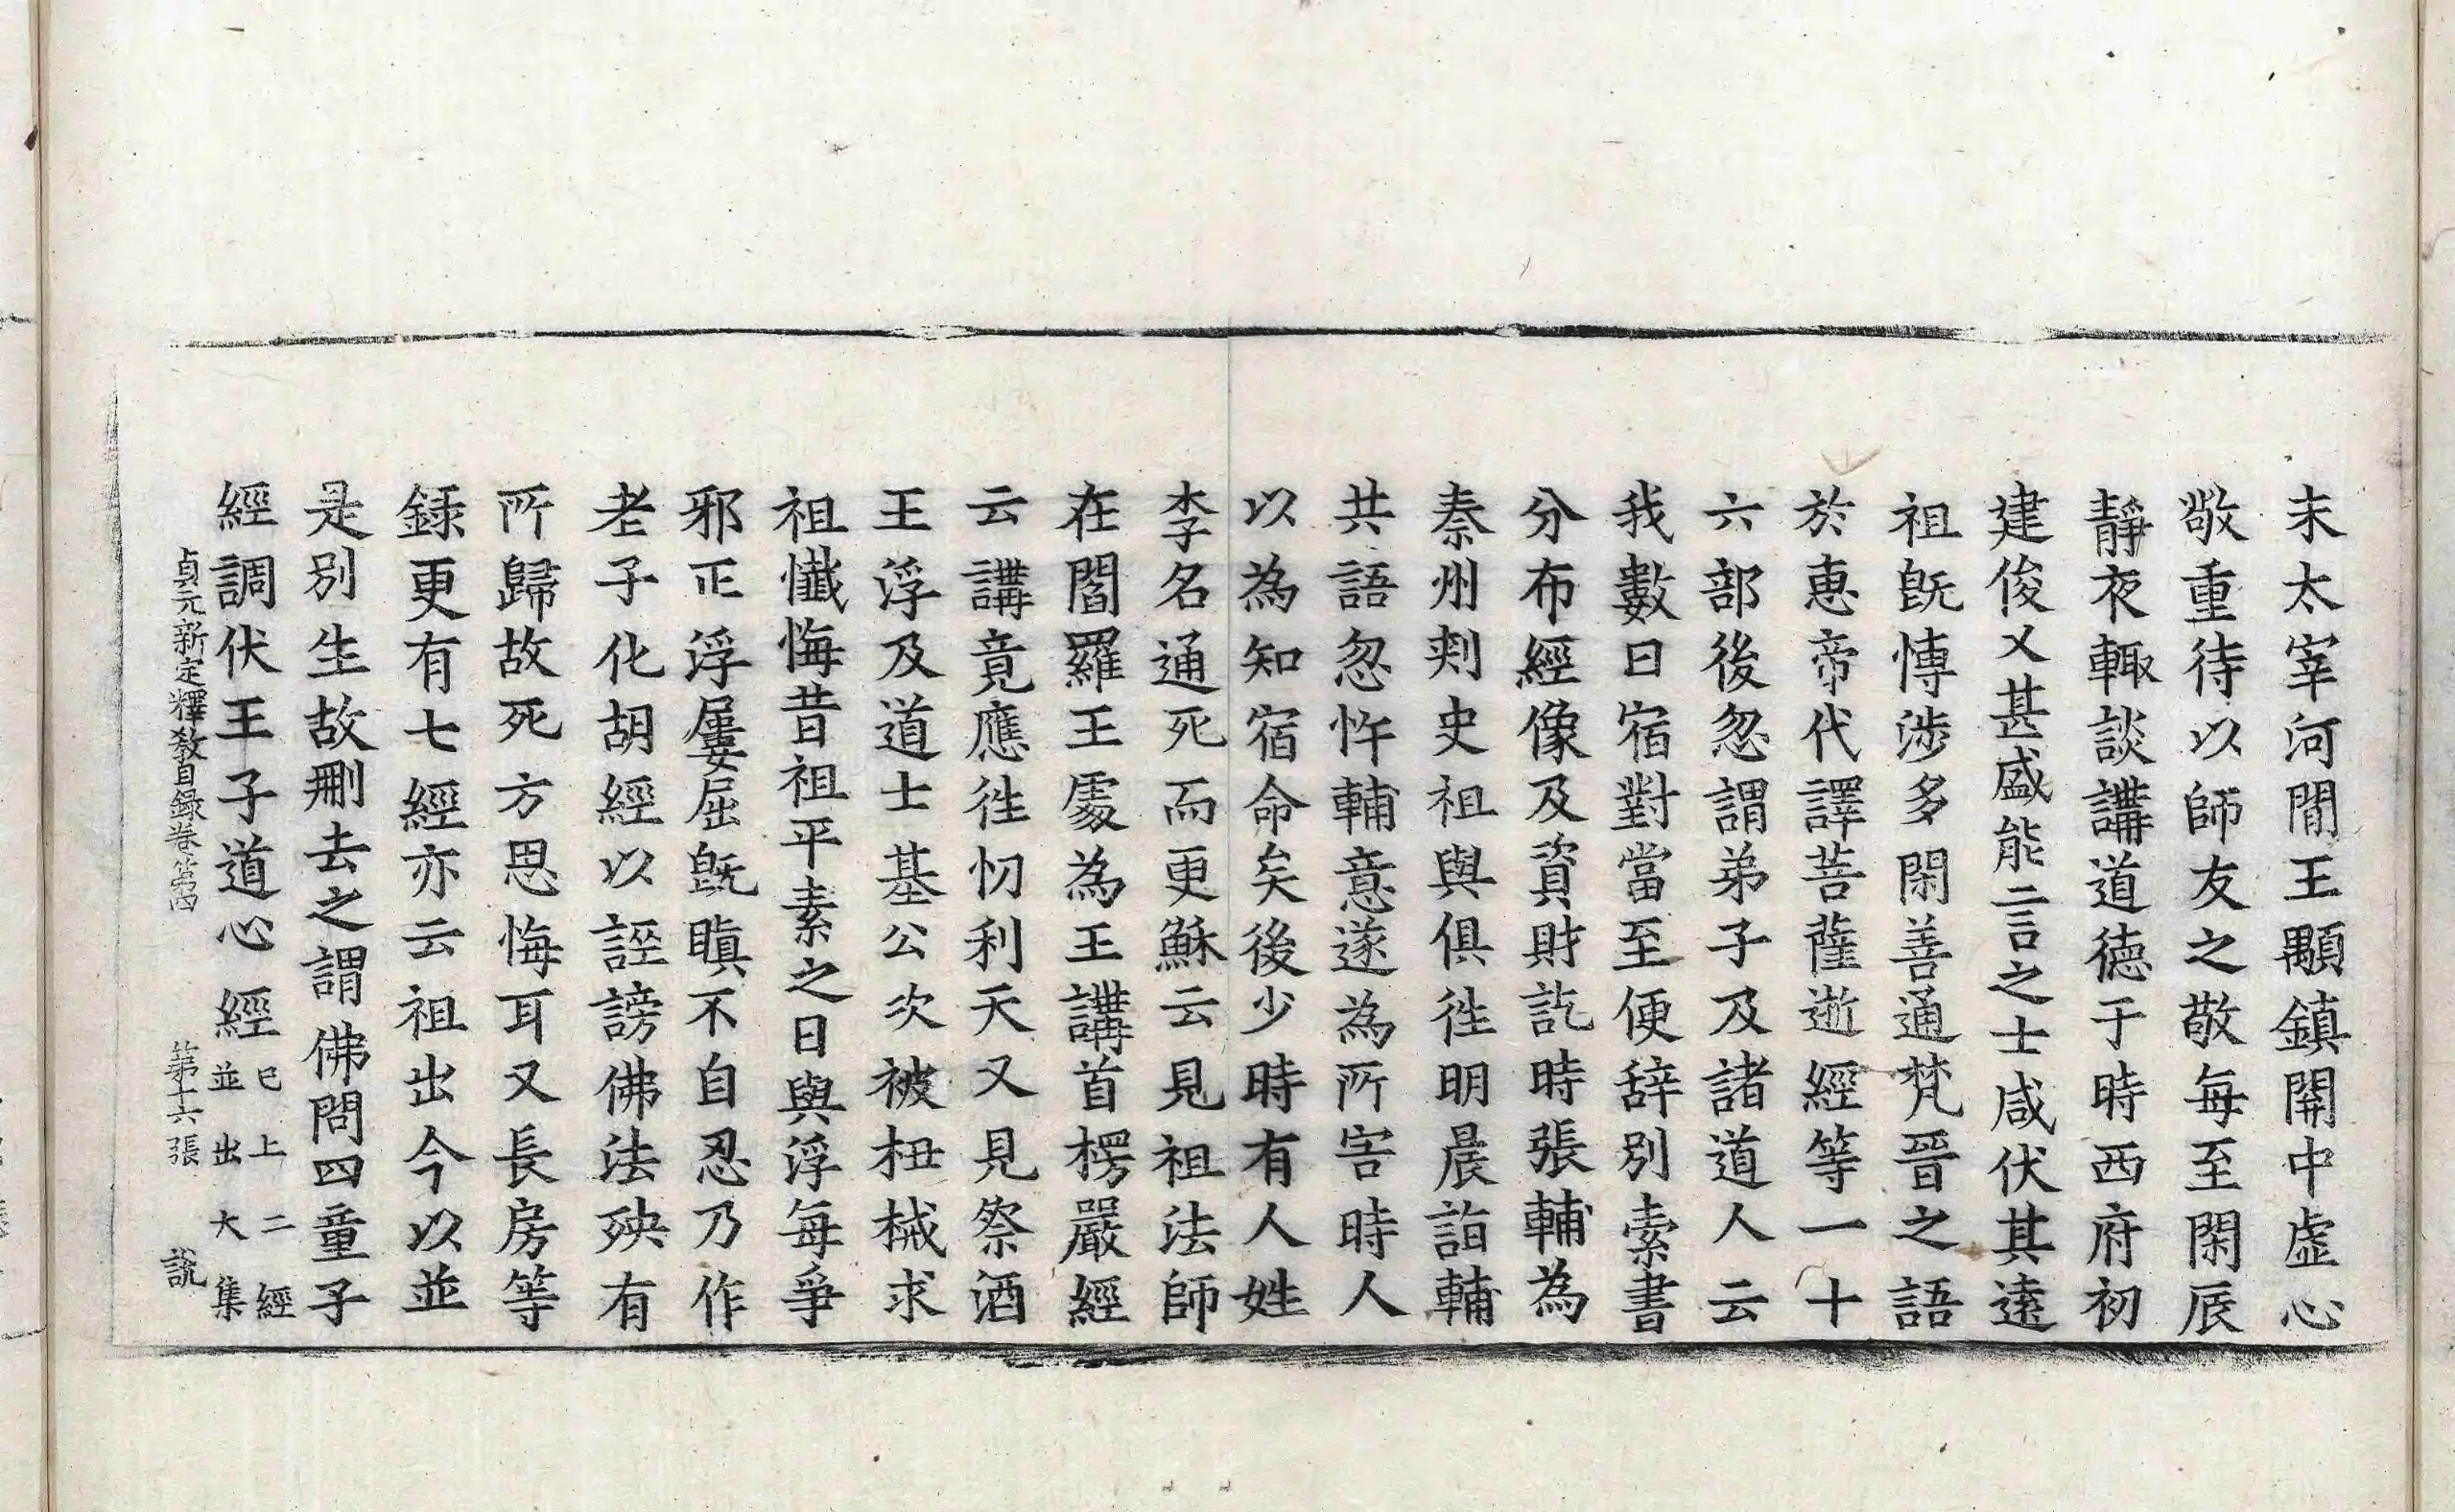 末太宰河閒王顒鎮關中虛心
敬重待以師友之敬每至閑辰
靜夜輙談講道德于時西府初
建俊乂甚盛能言之士咸伏其遠
祖旣愽涉多閑善通梵晉之語
於惠帝代譯菩薩逝經等一十
六部後忽謂弟子及諸道人云
我數日宿對當至便辞別索書
分布經像及資財訖時張輔為
秦州刺史祖與俱徃明晨詣輔
共語忽忤輔意遂為所害時人
以為知宿命矣後少時有人姓
李名通死而更穌云見祖法師
在閻羅王處為王講首楞嚴經
云講竟應徃忉利天又見祭酒
王浮及道士基公次被杻械求
祖懺悔昔祖平素之日與浮每爭
邪正浮屢屈旣瞋不自忍乃作
老子化胡經以誣謗佛法殃有
所歸故死方思悔耳又長房等
錄更有七經亦云祖出今以並
是別生故刪去之謂佛問四童子
經調伏王子道心經已上二經
並出大集
貞元新定釋教目録卷第四 第十六張 說